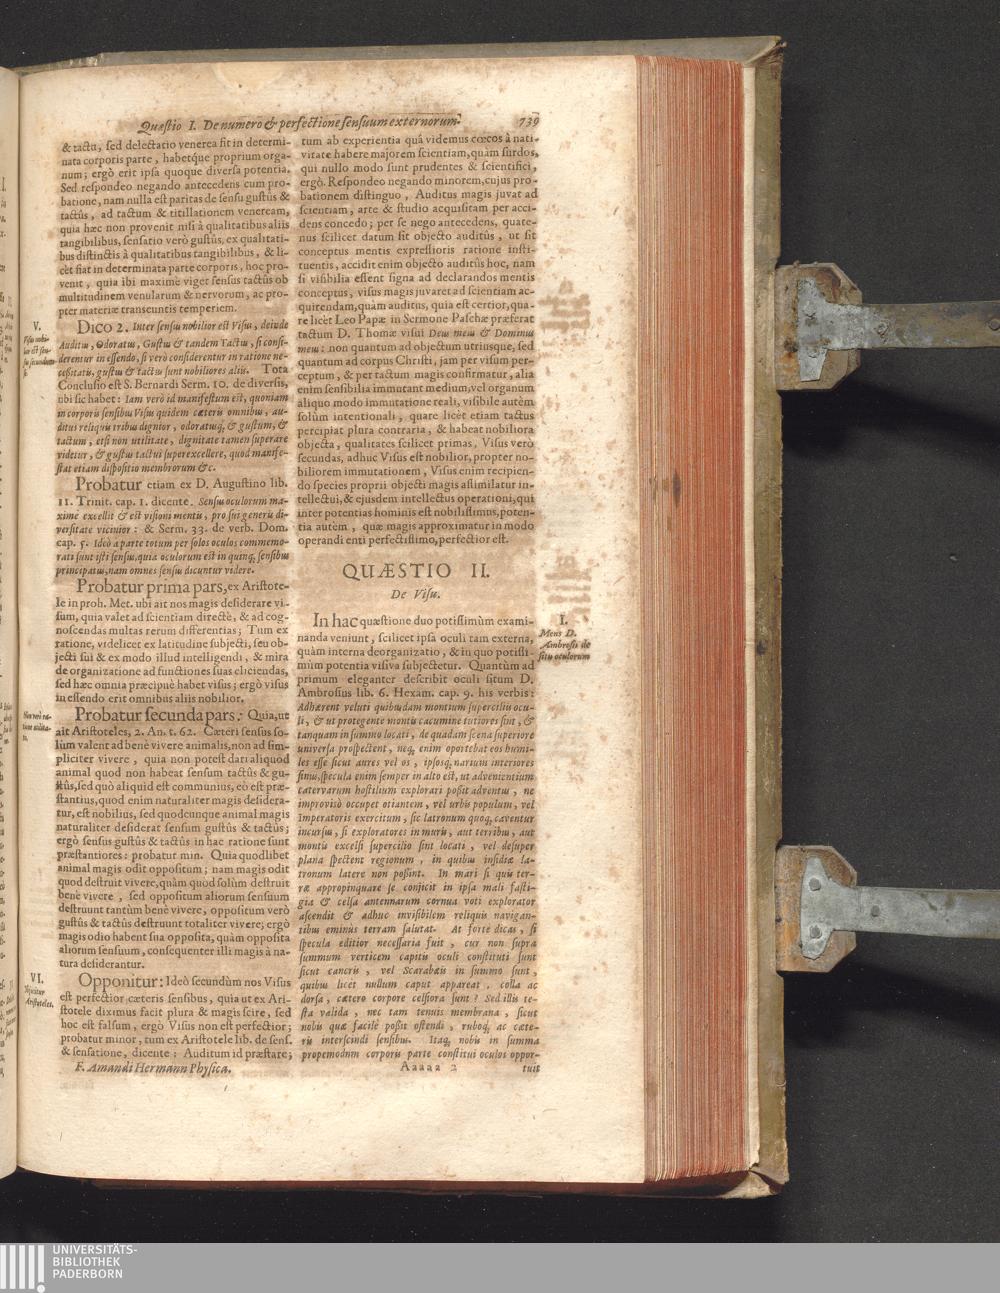 Quæstio I. De numero & perfectione sensuum externorum. 739
& tactu, sed delectatio venerea fit in determi-
nata corporis parte, habetque proprium orga-
num; ergò erit ipsa quoque diversa potentia.
Sed respondeo negando antecedens cum pro-
batione, nam nulla est paritas de sensu gustûs &
tactûs, ad tactum & titillationem veneream,
quia hæc non provenit nisi à qualitatibus aliis
tangibilibus, sensatio verò gustûs, ex qualitati-
bus distinctis à qualitatibus tangibilibus, & li-
cèt fiat in determinata parte corporis, hoc pro-
venit, quia ibi maximè viget sensus tactûs ob
multitudinem venularum & nervorum, ac pro-
pter materiæ transeuntis temperiem.
V.
Visus nobi-
lior est sen-
sus secundum
se.
Dico 2. Inter sensus nobilior est Visus, deinde
Auditus, Odoratus, Gustus & tandem Tactus, si consi-
derentur in essendo, si verò considerentur in ratione ne-
cessitatis, gustus & tactus sunt nobiliores aliis. Tota
Conclusio est S. Bernardi Serm. 10. de diversis,
ubi sic habet: Iam verò id manifestum est, quoniam
in corporis sensibus Visus quidem cæteris omnibus, au-
ditus reliquis tribus dignior, odoratusq, & gustum, &
tactum, etsi non utilitate, dignitate tamen superare
videtur, & gustus tactui superexcellere, quod manife-
stat etiam dispositio membrorum &c.
Probatur etiam ex D. Augustino lib.
11. Trinit. cap. 1. dicente. Sensus oculorum ma-
xime excellit & est visioni mentis, pro sui generis di-
versitate vicinior: & Serm. 33. de verb. Dom.
cap. 5. Ideò à parte totum per solos oculos commemo-
rati sunt isti sensus, quia oculorum est in quinq, sensibus
principatus, nam omnes sensus dicuntur videre.
Probatur prima pars, ex Aristote-
le in proh. Met. ubi ait nos magis desiderare vi-
sum, quia valet ad scientiam directè, & ad cog-
noscendas multas rerum differentias; Tum ex
ratione, videlicet ex latitudine subjecti, seu ob-
jecti sui & ex modo illud intelligendi, & mira
de organizatione ad functiones suas eliciendas,
sed hæc omnia præcipuè habet visus; ergò visus
in essendo erit omnibus aliis nobilior.
Non verò ra-
tione utilita-
tis.
Probatur secunda pars: Quia, ut
ait Aristoteles, 2. An. t. 62. Cæteri sensus so-
lùm valent ad benè vivere animalis, non ad sim-
pliciter vivere, quia non potest dari aliquod
animal quod non habeat sensum tactûs & gu-
stûs, sed quò aliquid est communius, eò est præ-
stantius, quod enim naturaliter magis desidera-
tur, est nobilius, sed quodcunque animal magis
naturaliter desiderat sensum gustûs & tactûs;
ergò sensus gustûs & tactûs in hac ratione sunt
præstantiores: probatur min. Quia quodlibet
animal magis odit oppositum; nam magis odit
quod destruit vivere, quàm quod solùm destruit
benè vivere, sed oppositum aliorum sensuum
destruunt tantùm benè vivere, oppositum verò
gustûs & tactûs destruunt totaliter vivere; ergò
magis odio habent sua opposita, quàm opposita
aliorum sensuum, consequenter illi magis à na-
tura desiderantur.
VI.
Objicitur
Aristoteles.
Opponitur: Ideò secundùm nos Visus
est perfectior cæteris sensibus, quia ut ex Ari-
stotele diximus facit plura & magis scire, sed
hoc est falsum, ergò Visus non est perfectior;
probatur minor, tum ex Aristotele lib. de sens.
& sensatione, dicente: Auditum id præstare;
F. Amandi Hermann Physica.
tum ab experientia quâ videmus cœcos à nati-
vitate habere majorem scientiam, quàm surdos,
qui nullo modo sunt prudentes & scientifici,
ergò. Respondeo negando minorem, cujus pro-
bationem distinguo, Auditus magis juvat ad
scientiam, arte & studio acquisitam per acci-
dens concedo; per se nego antecedens, quate-
nus scilicet datum sit objecto auditûs, ut sit
conceptus mentis expressioris ratione insti-
tuentis, accidit enim objecto auditûs hoc, nam
si visibilia essent signa ad declarandos mentis
conceptus, visus magis juvaret ad scientiam ac-
quirendam, quàm auditus, quia est certior, qua-
re licèt Leo Papæ in Sermone Paschæ præferat
tactum D. Thomæ visui Deus meus & Dominus
meus: non quantum ad objectum utriusque, sed
quantum ad corpus Christi, jam per visum per-
ceptum, & per tactum magis confirmatur, alia
enim sensibilia immutant medium, vel organum
aliquo modo immutatione reali, visibile autèm
solùm intentionali, quare licèt etiam tactus
percipiat plura contraria, & habeat nobiliora
objecta, qualitates scilicet primas, Visus verò
secundas, adhuc Visus est nobilior, propter no-
biliorem immutationem, Visus enim recipien-
do species proprii objecti magis assimilatur in-
tellectui, & ejusdem intellectus operationi, qui
inter potentias hominis est nobilissimus, poten-
tia autèm, quæ magis approximatur in modo
operandi enti perfectissimo, perfectior est.
QUÆSTIO II.
De Visu.
I.
Mens D.
Ambrosii de
situ oculorum
In hac quæstione duo potissimùm exami-
nanda veniunt, scilicet ipsa oculi tam externa,
quàm interna deorganizatio, & in quo potissi-
mùm potentia visiva subjectetur. Quantùm ad
primum eleganter describit oculi situm D.
Ambrosius lib. 6. Hexam. cap. 9. his verbis:
Adhærent veluti quibusdam montium supercilius ocu-
li, & ut protegente montis cacumine tutiores sint, &
tanquam in summo locati, de quadam scena superiore
universa prospectent, neq, enim oportebat eos humi-
les esse sicut aures vel os, ipsosq, narium interiores
sinus, specula enim semper in alto est, ut advenientium
catervarum hostilium explorari possit adventus, ne
improvisò occupet otiantem, vel urbis populum, vel
Imperatoris exercitum, sic latronum quoq, caventur
incursus, si exploratores in muris, aut terribus, aut
montis excelsi supercilio sint locati, vel desuper
plana spectent regionum, in quibus insidiæ la-
tronum latere non possint. In mari si quis ter-
ræ appropinquare se conjicit in ipsa mali fasti-
gia & celsa antennarum cornua voti explorator
ascendit & adhuc invisibilem reliquis navigan-
tibus eminus terram salutat. At forte dicas, si
specula editior necessaria fuit, cur non supra
summum verticem capitis oculi constituti sunt
sicut cancris, vel Scarabæis in summo sunt,
quibus licet nullum caput appareat, colla ac
dorsa, cætero corpore celsiora sunt? Sed illis te-
sta valida, nec tam tenuis membrana, sicut
nobis quæ facilè possit ostendi, rubosq, ac cæte-
ris interscindi sensibus. Itaq, nobis in summa
propemodum corporis parte constitui oculos oppor-
Aaaaa 2 tuit
UNIVERSITÄTS-
BIBLIOTHEK
PADERBORN